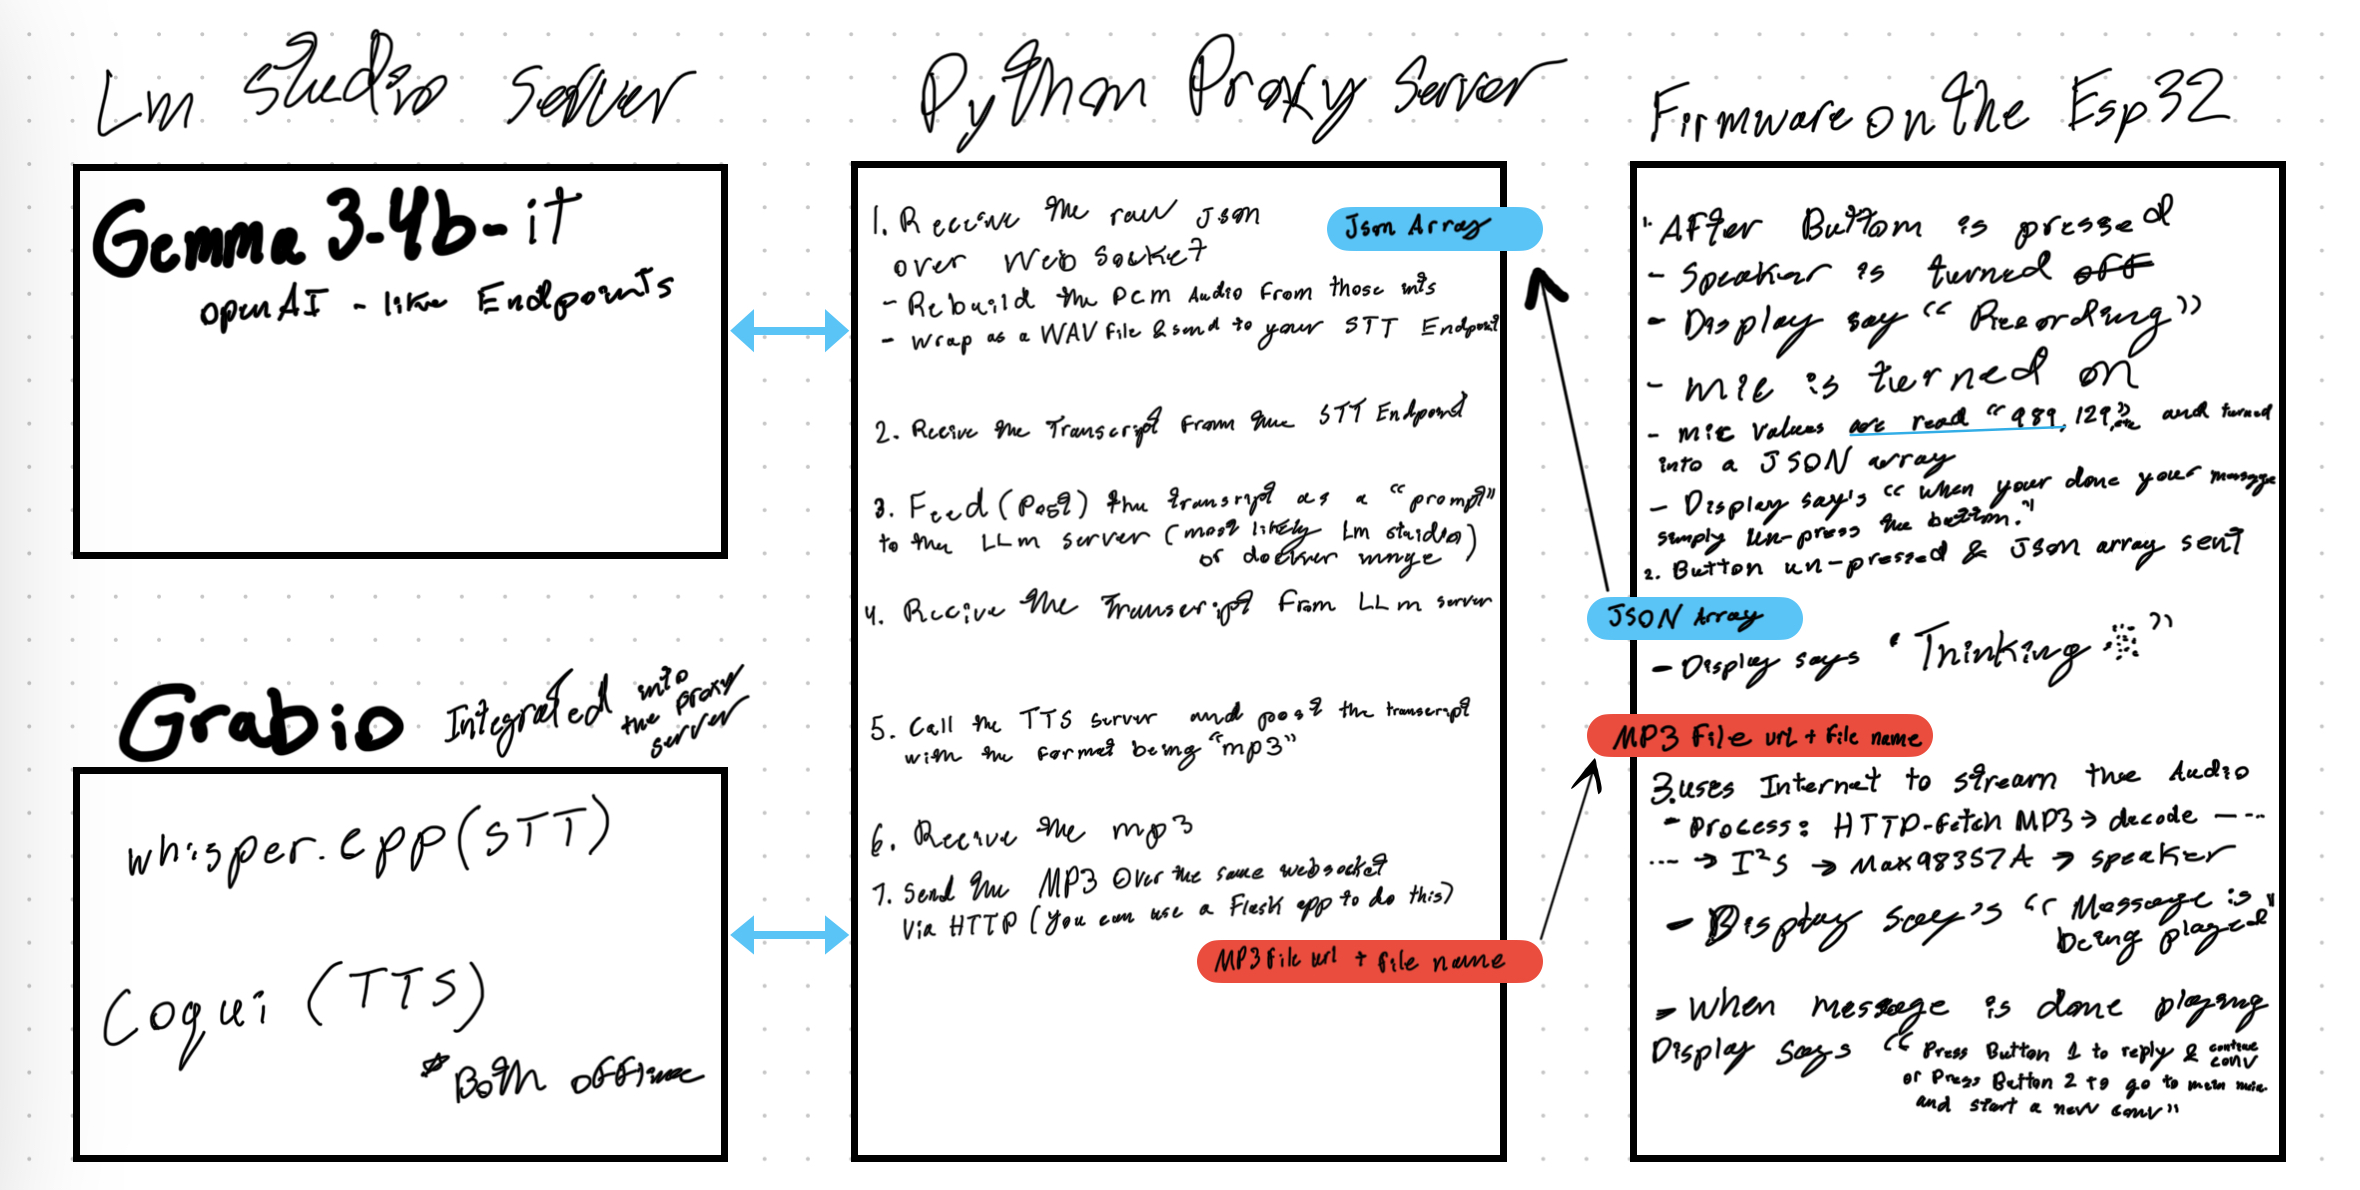 Lm Studio Server
Gemma 3-4b-it
openAI - like Endpoints
Grabio Integrated into
the proxy
server
whisper.cpp (STT)
Coqui (TTS)
* Both offline
Python Proxy Server
1. Receive the raw Json
over Web Socket
Json Array
- Rebuild the Pcm Audio From those ints
- Wrap as a WAV File & send to your STT Endpoint
2. Receive the Transcript From the STT Endpoint
3. Feed (Post) the transript as a "prompt"
to the LLm server (most likely Lm studio)
or docker
4. Receive the Transcript From LLm server
5. Call the TTS server and post the transcript
with the format being "mp3"
6. Receive the mp3
7. Send the MP3 Over the same websocket
Via HTTP (you can use a Flask app to do this)
MP3 File url + file name
Firmware on the Esp32
1. AFter Button is pressed
- Speaker is turned off
- Display say "Recording"
- mic is turned on
- mic values are read "989, 129, etc" and turned
into a JSON array
- Display say's "when your done your message
simply un-press the button."
2. Button un-pressed & Json array sent
JSON Array
- Display says "Thinking"
MP3 File url + File name
3. uses Internet to stream the Audio
- Process: HTTP-fetch MP3 → decode ----
--- → I²S → Max98357A → speaker
- Display say's "Message is
being played"
- When message is done playing
Display says "Press Button 1 to reply & continue
conv
or Press Button 2 to go to main
and start a new conv"